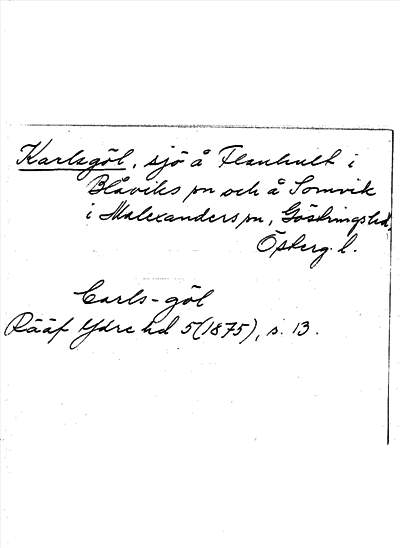 Karlsgöl, sjö å Flanhult i
Blåviks sn och å Somvik
i Malexanders sn, Göstringshd,
Österg. l.
Carls-göl
Rääf Ydre hd 5 (1875), s. 13.